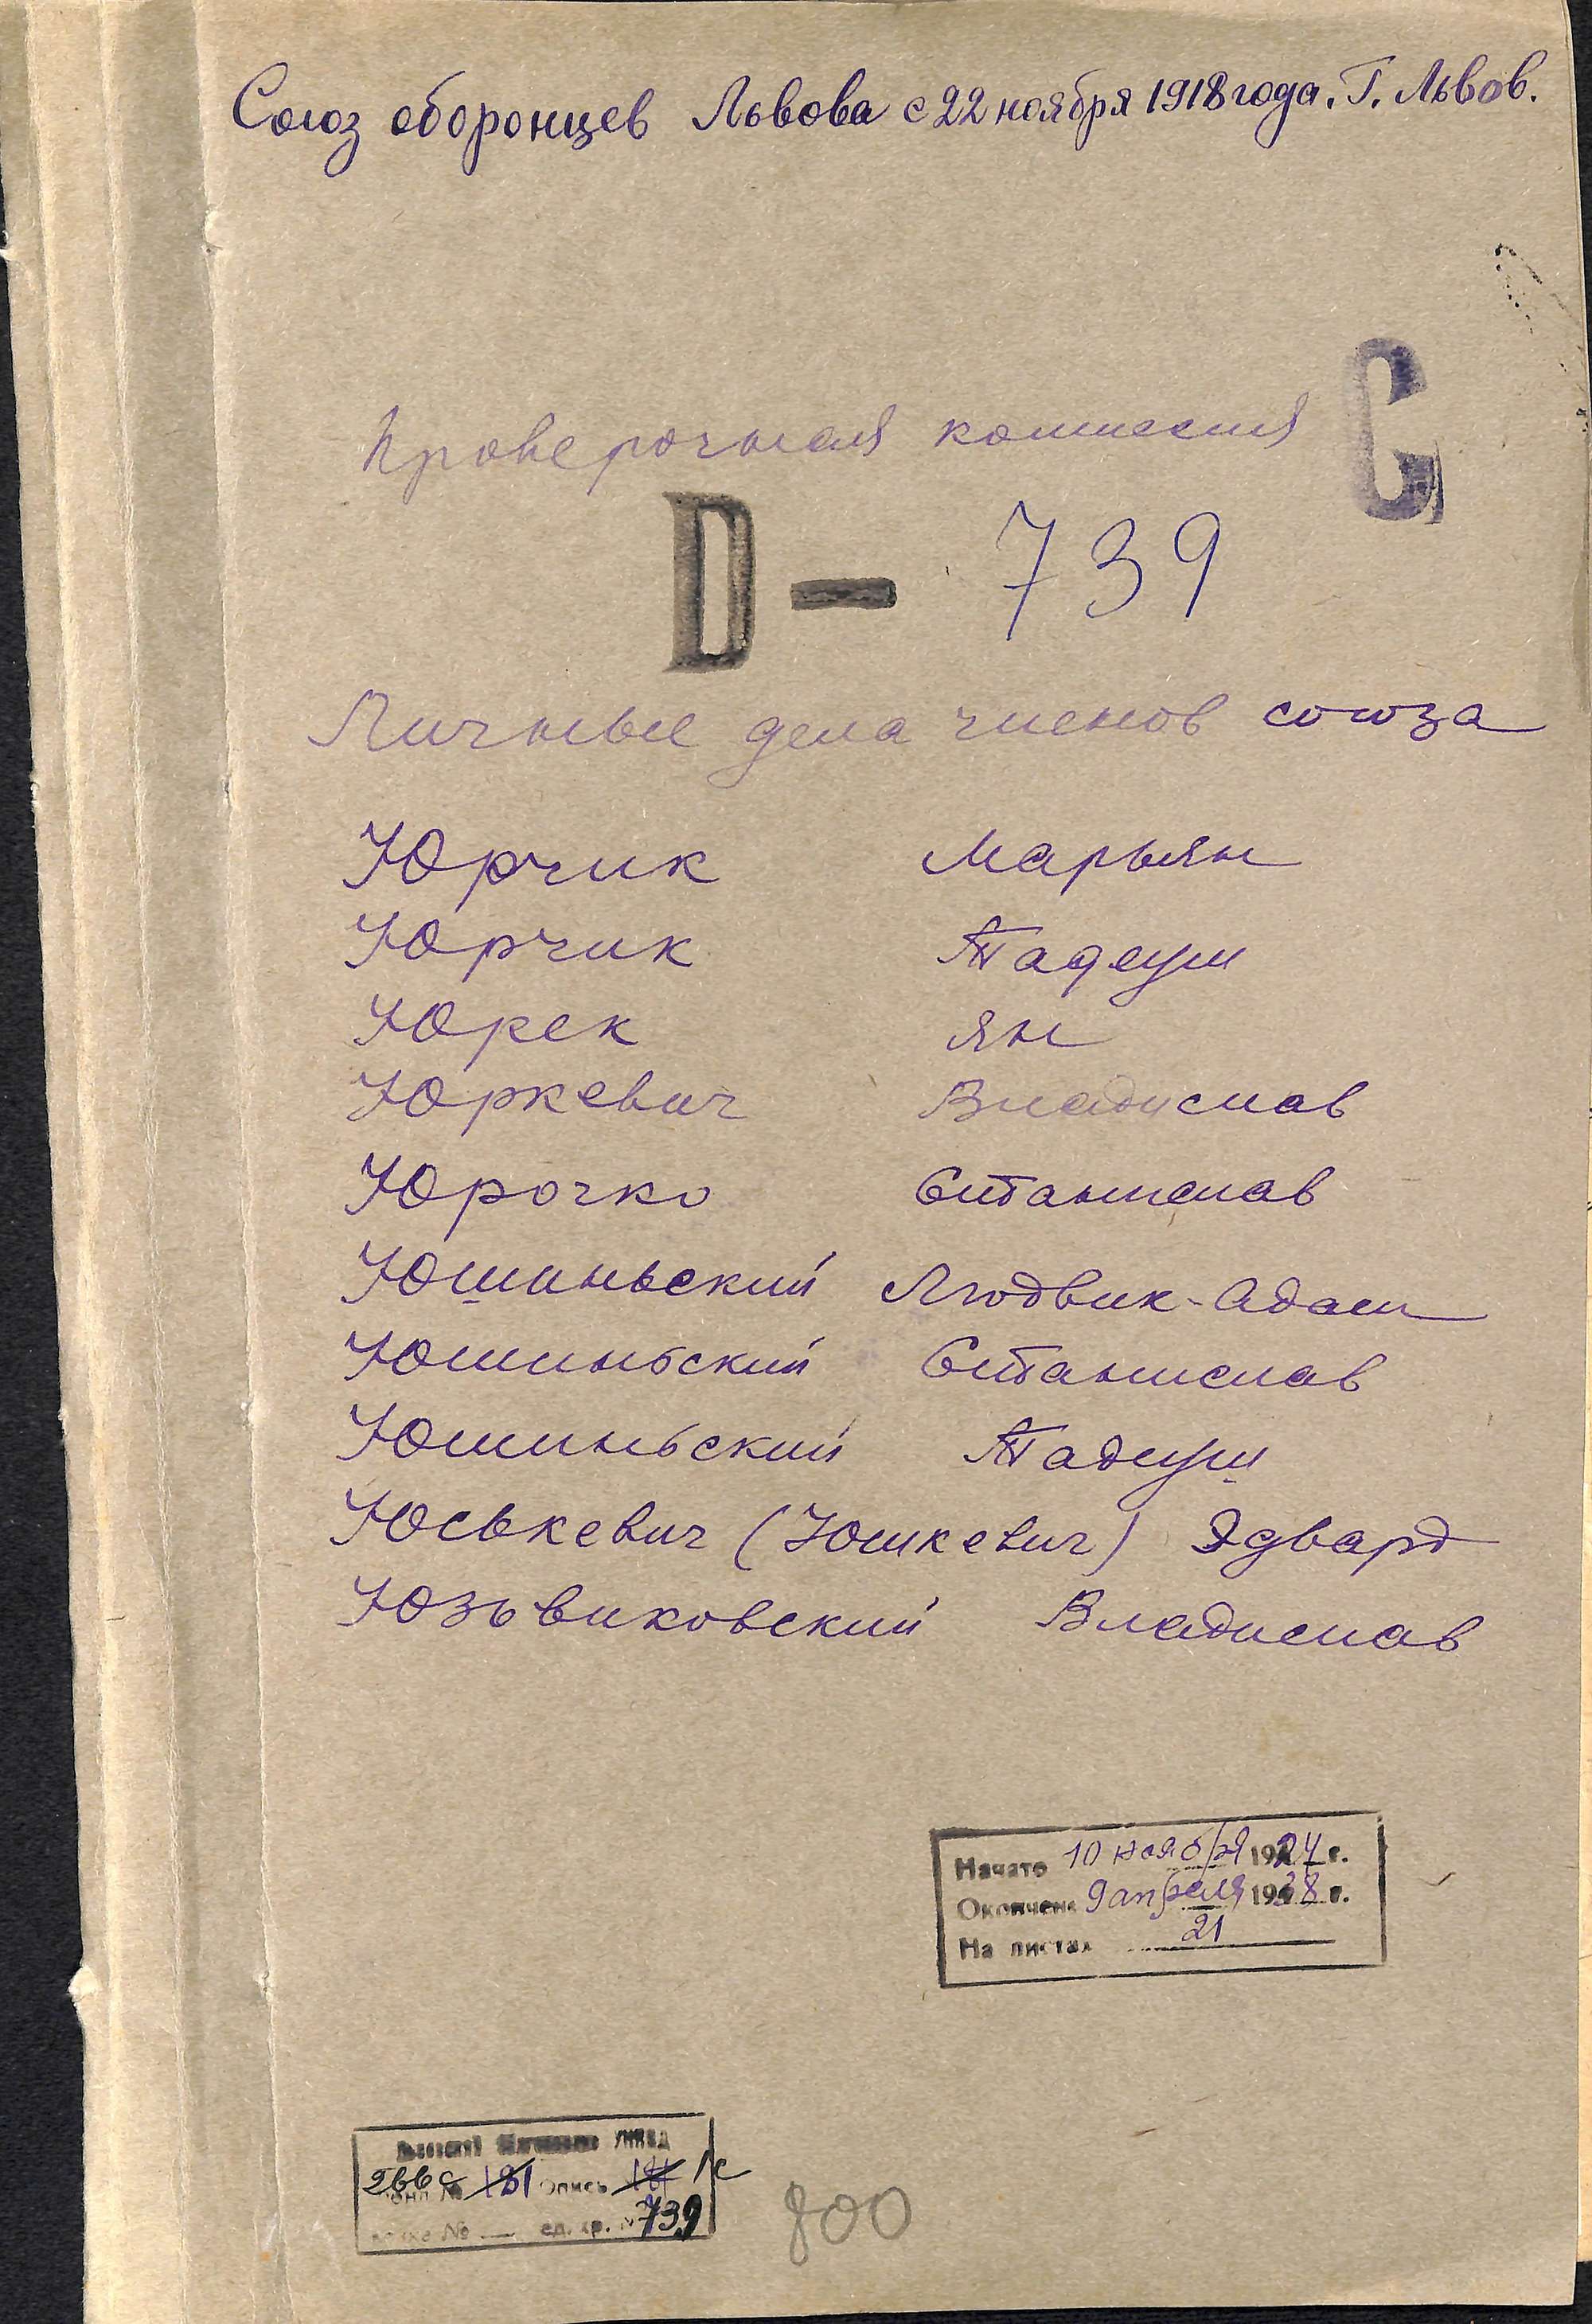 Союз оборонцев Львова с 22 ноября 1918 года. Г. Львов.
С
Проверочная комиссия
D — 739
Личные дела членов союза
Юрчик Марьян
Юрчик Тадеуш
Юрек Ян
Юркевич Владислав
Юрочко Станислав
Юшиньский Людвик-Адам
Юшиньский Станислав
Юшиньский Тадеуш
Юськевич (Юшкевич) Эдвард
Юзьвиковский Владислав
Начато 10 ноября 1924 г.
Окончено 9 апреля 1938 г.
На листах 21
266с 181 Опись 181 1с
№ — ед. хр. № 739
800